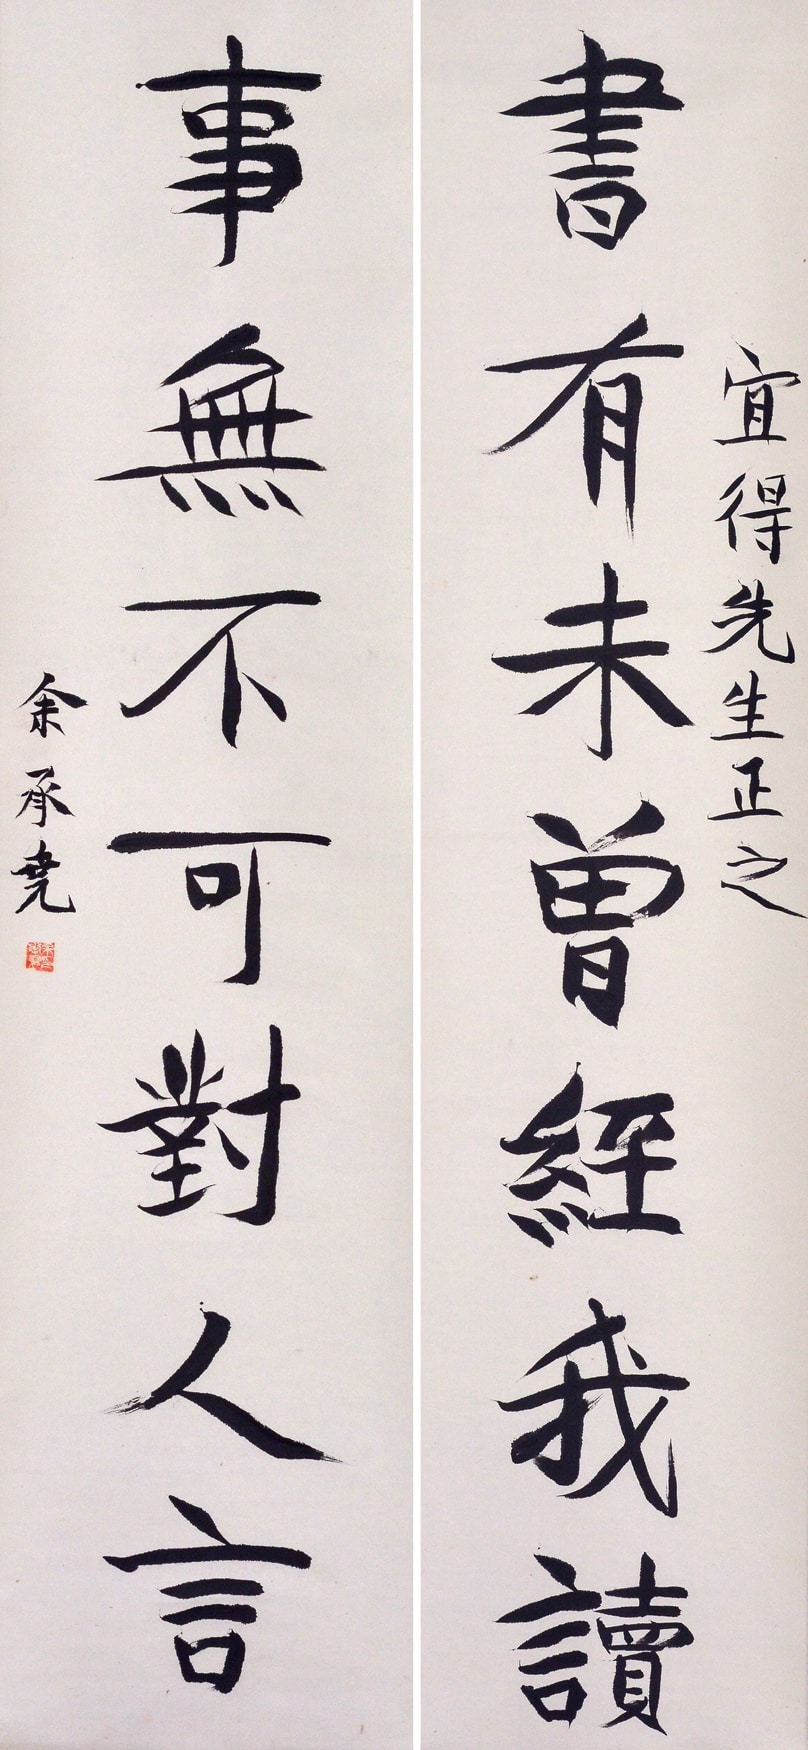 宜得先生正之
書有未曾経我讀
事無不可對人言
余承堯